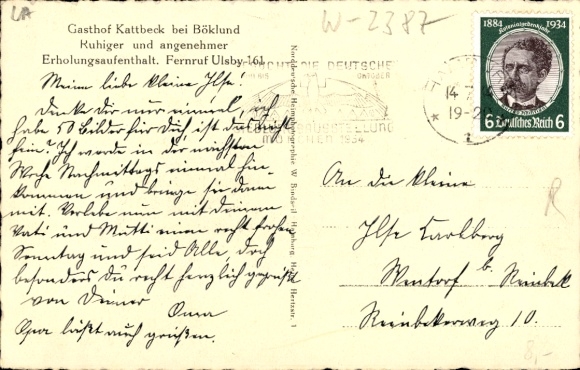 LA
W-2387
Gasthof Kattbeck bei Böklund
Ruhiger und angenehmer
Erholungsaufenthalt. Fernruf Ulsby 161
Meine liebe kleine Ilse!
Denke Dir nur einmal, ich
habe 50 Bilder für Dich, ist das nicht
fein? Ich werde in der nächsten
Woche Nachmittags einmal hin-
kommen und bringe sie dann
mit. Verlebe nun mit deinem
Vati und Mutti einen recht frohen
Sonntag und seid Alle, doch
besonders Du recht herzlich gegrüßt
von Deiner Oma
Opa läßt auch grüßen.
Norddeutsche Heimphotographie W. Hamburg Hertzstr. 1
DIE DEUTSCHE
OKTOBER
MÜNCHEN 1934
14.7.
19-20
1884 1934
Kolonialgedenkjahr
6 Deutsches Reich 6
An die kleine
Ilse Carlberg
Wentorf b. Reinbek
Reinbekerweg 10.
R
8,-